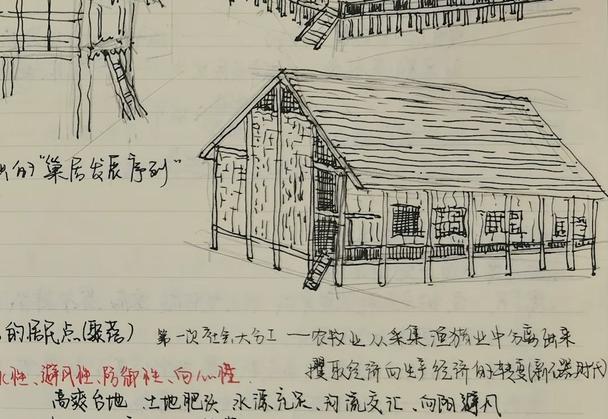 的"巢居发展序列"
的居民点(聚落) 第一次社会大分工——农牧业从采集渔猎业中分离出来
攫取经济向生产经济的转变(新石器时代)
水性、避风性、防御性、向心性
高爽台地 土地肥沃 水源充足、河流交汇、向阳避风